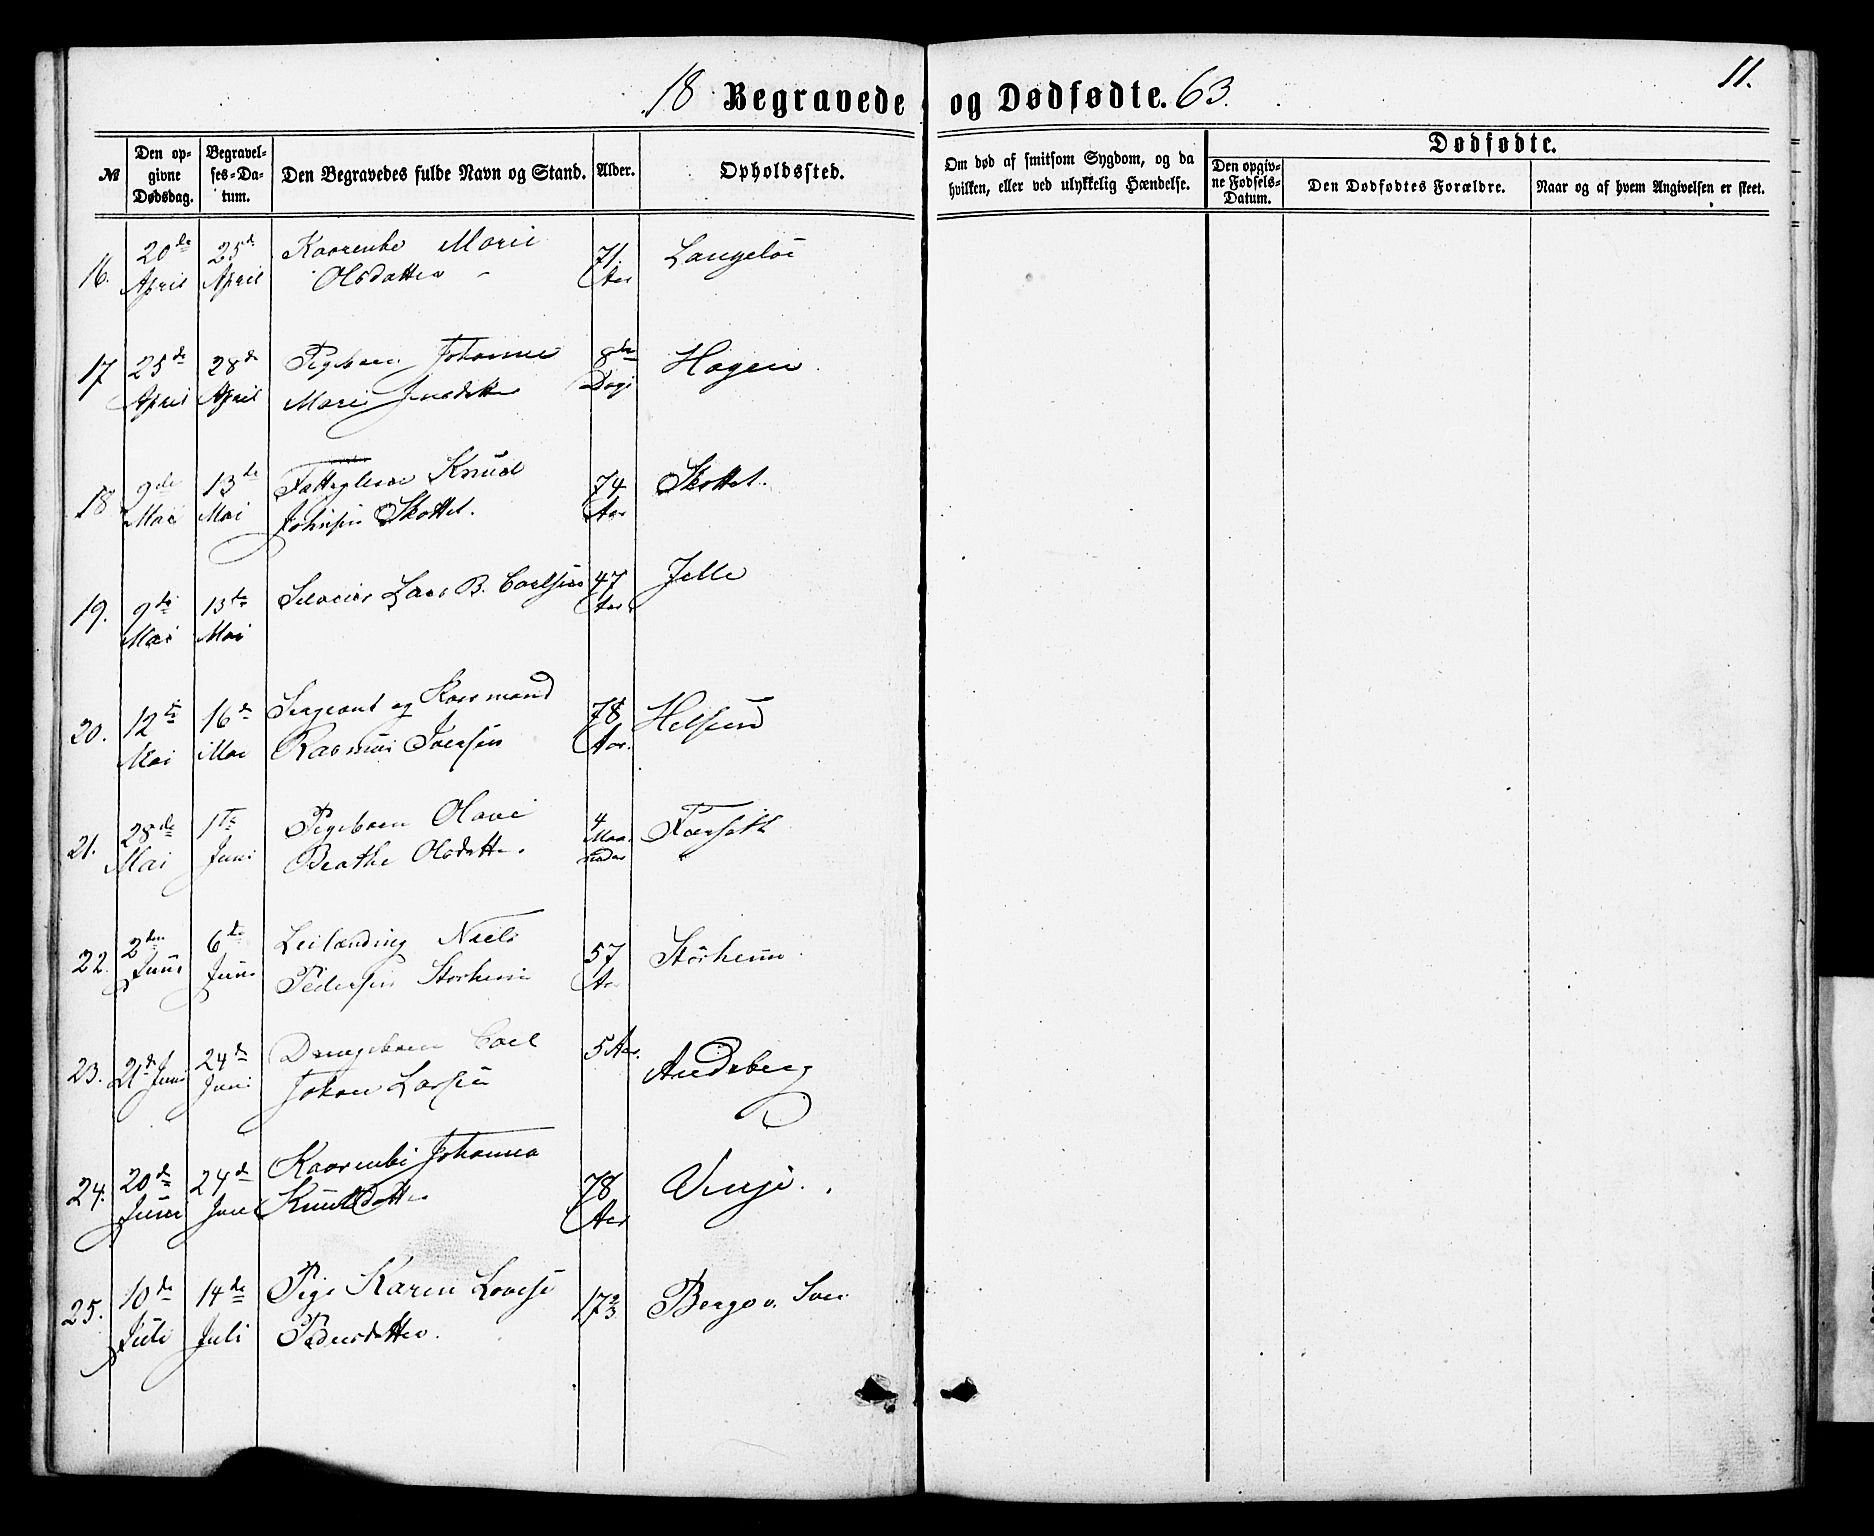 18 Begravede og Dødfødte. 63.
11.
№
Den opgivne Dødsdag.
Begravelses-Datum.
Den Begravedes fulde Navn og Stand.
Alder.
Opholdssted.
Om død af smitsom Sygdom, og da hvilken, eller ved ulykkelig Hændelse.
Dødfødte.
Den opgivne Fødsels-Datum.
Den Dødfødtes Forældre.
Naar og af hvem Angivelsen er skeet.
16. 20de April 25de April Marie Olsdatter 71 Aar
17 25de April 28de April Pigebarn Johanne Marie 8te Dage Hagen
18 9de Mai 13de Mai Knud Johnsen Skottet. 74 Aar Skottet.
19. 9de Mai 13de Mai Lars B. Carlsen 47 Aar Jelle
20. 12te Mai 16de Mai Sergeant og Kaarmand Rasmus Iversen 78 Aar. Helsem
21. 28de Mai 1ste Juni Pigebarn Olave Beathe Olsdatter 4 Maaneder
22. 2den Juni 6te Juni Leilænding Niels Pedersen Storheim 57 Aar Storheim
23. 21de Juni 24de Juni Drengebarn Carl Johan Larsen 5 Aar.
24. 20de Juni 24de Juni Johanna Knudsdatter 78 Aar Vinje.
25. 10de Juli 14de Juli Pige Karen Lovise Pedersdatter. 17 2/3